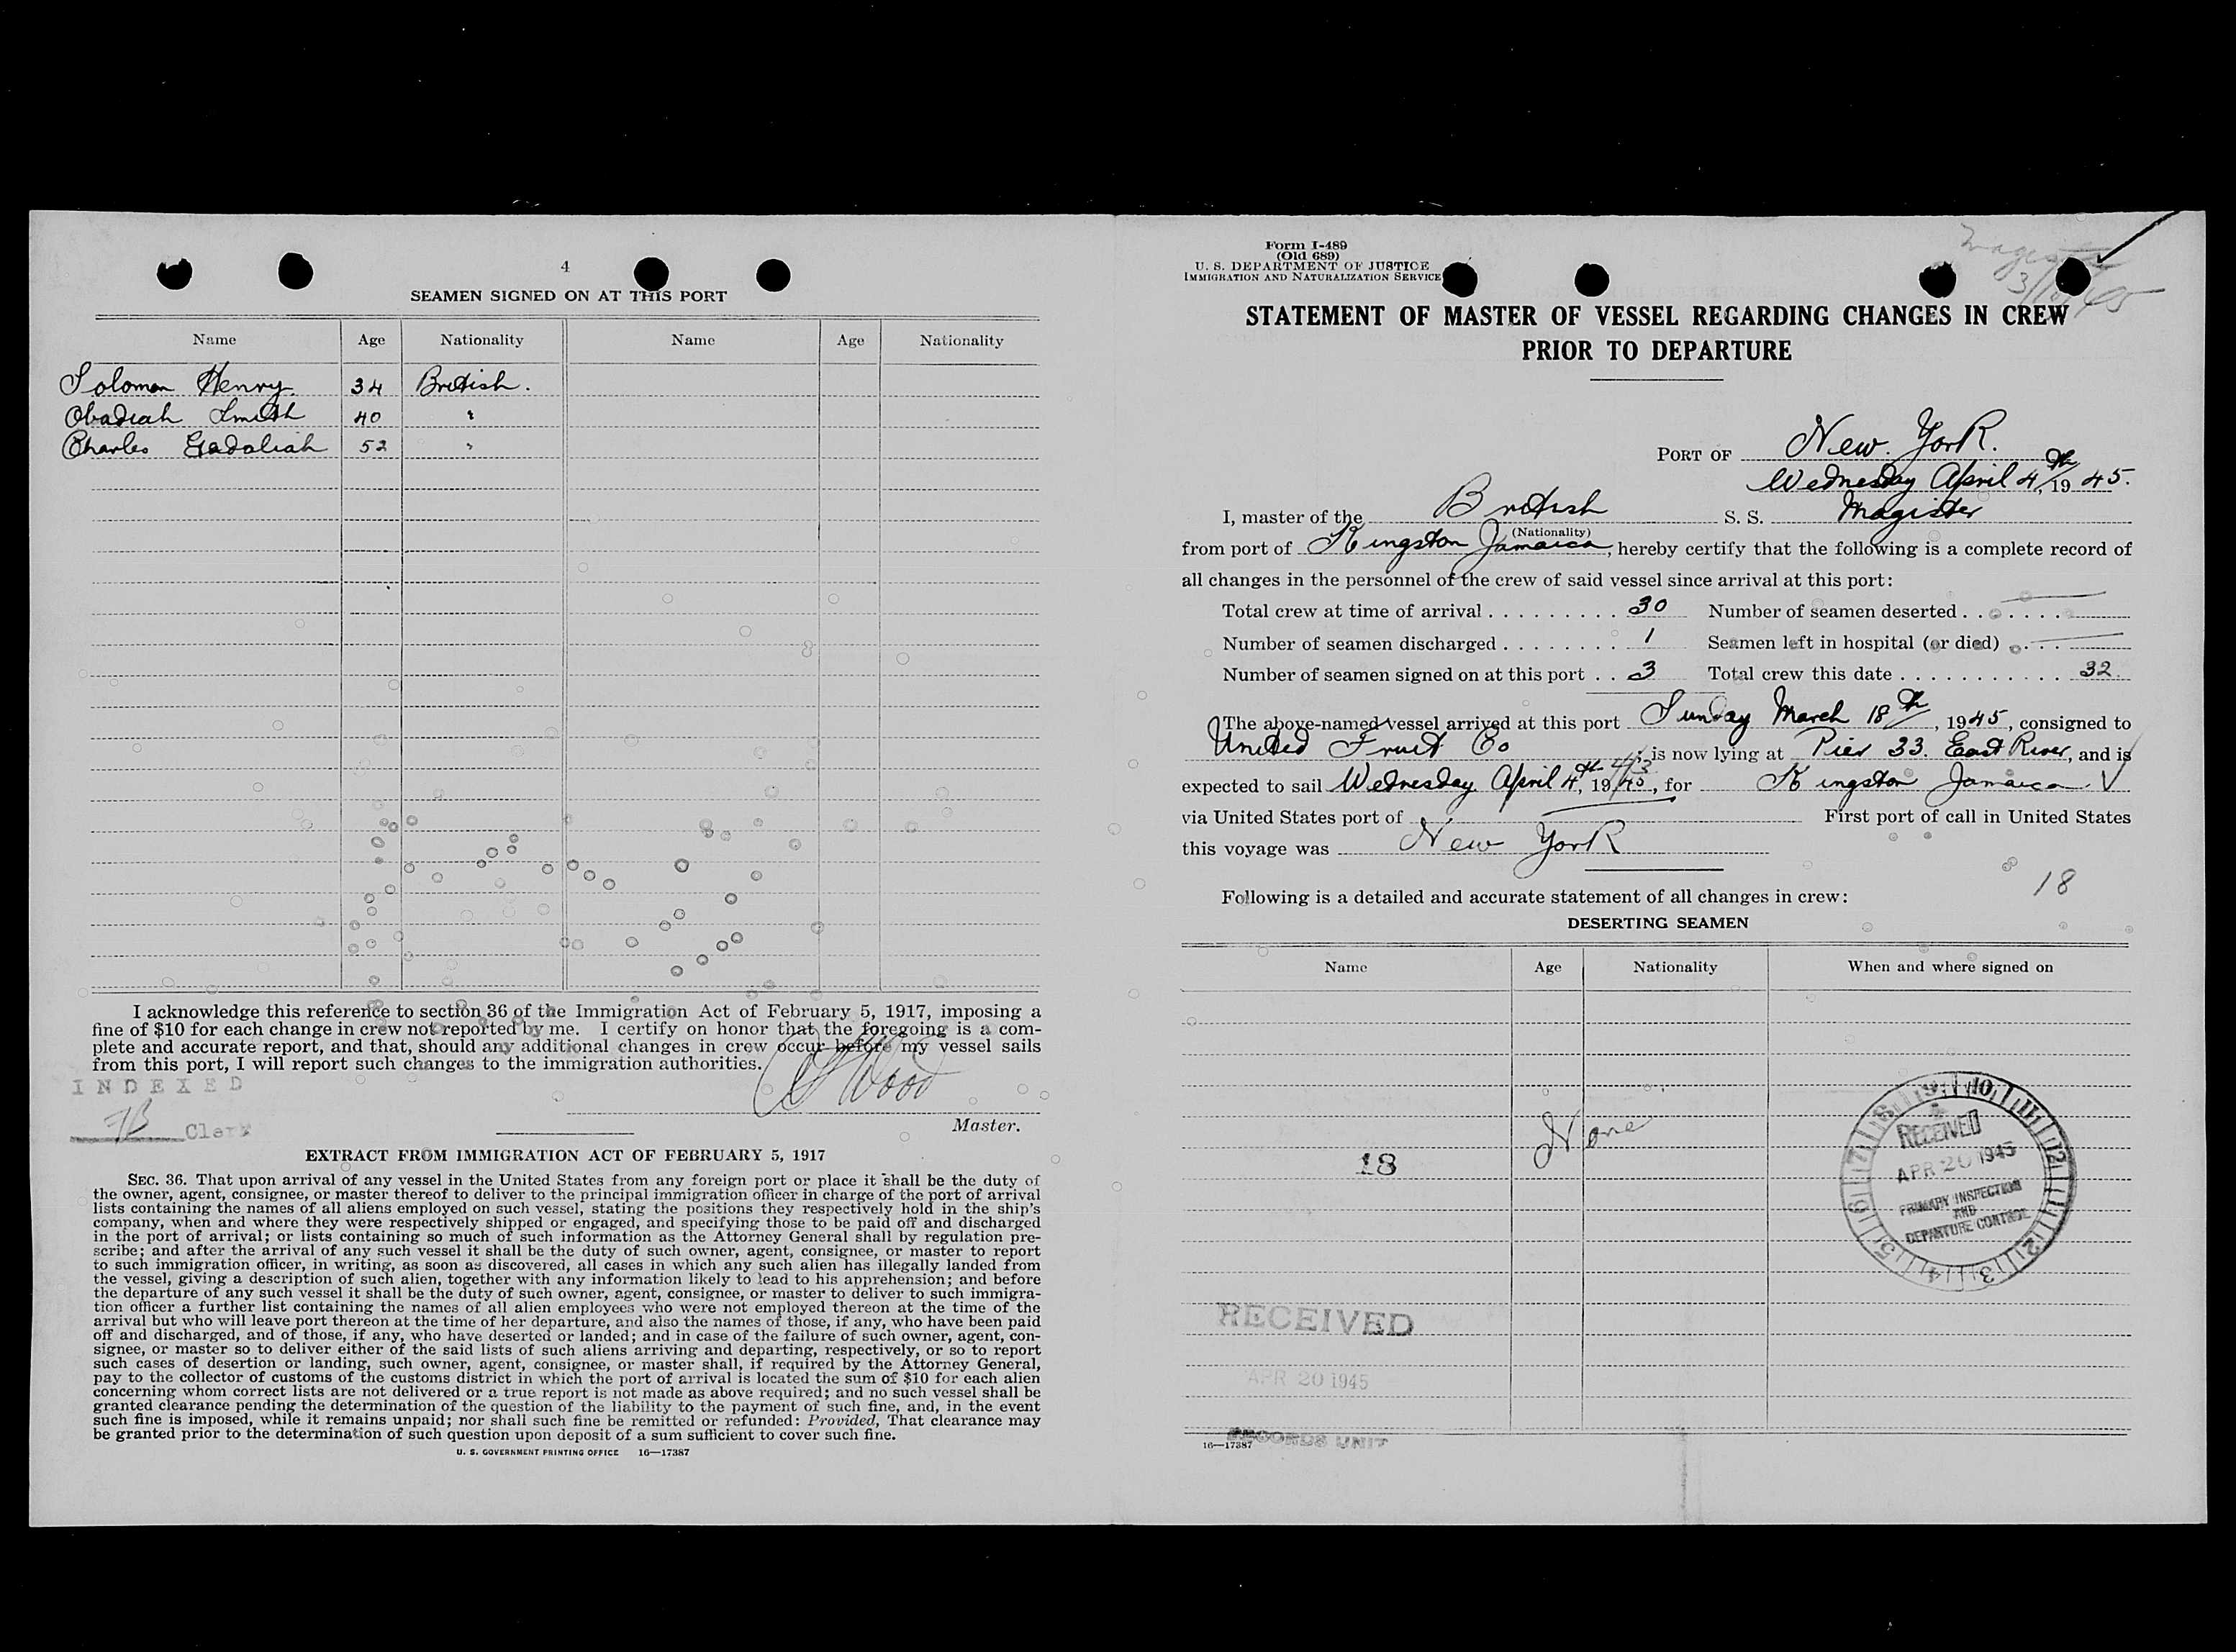 4
SEAMEN SIGNED ON AT THIS PORT
Name Age Nationality Name Age Nationality
Solomon Henry. 34 British.
Obadiah Smith 40 "
Charles Gadaliah 52 "
I acknowledge this reference to section 36 of the Immigration Act of February 5, 1917, imposing a
fine of $10 for each change in crew not reported by me. I certify on honor that the foregoing is a com-
plete and accurate report, and that, should any additional changes in crew occur before my vessel sails
from this port, I will report such changes to the immigration authorities.
Wood
INDEXED
Clerk
Master.
EXTRACT FROM IMMIGRATION ACT OF FEBRUARY 5, 1917
SEC. 36. That upon arrival of any vessel in the United States from any foreign port or place it shall be the duty of
the owner, agent, consignee, or master thereof to deliver to the principal immigration officer in charge of the port of arrival
lists containing the names of all aliens employed on such vessel, stating the positions they respectively hold in the ship's
company, when and where they were respectively shipped or engaged, and specifying those to be paid off and discharged
in the port of arrival; or lists containing so much of such information as the Attorney General shall by regulation pre-
scribe; and after the arrival of any such vessel it shall be the duty of such owner, agent, consignee, or master to report
to such immigration officer, in writing, as soon as discovered, all cases in which any such alien has illegally landed from
the vessel, giving a description of such alien, together with any information likely to lead to his apprehension; and before
the departure of any such vessel it shall be the duty of such owner, agent, consignee, or master to deliver to such immigra-
tion officer a further list containing the names of all alien employees who were not employed thereon at the time of the
arrival but who will leave port thereon at the time of her departure, and also the names of those, if any, who have been paid
off and discharged, and of those, if any, who have deserted or landed; and in case of the failure of such owner, agent, con-
signee, or master so to deliver either of the said lists of such aliens arriving and departing, respectively, or so to report
such cases of desertion or landing, such owner, agent, consignee, or master shall, if required by the Attorney General,
pay to the collector of customs of the customs district in which the port of arrival is located the sum of $10 for each alien
concerning whom correct lists are not delivered or a true report is not made as above required; and no such vessel shall be
granted clearance pending the determination of the question of the liability to the payment of such fine, and, in the event
such fine is imposed, while it remains unpaid; nor shall such fine be remitted or refunded: Provided, That clearance may
be granted prior to the determination of such question upon deposit of a sum sufficient to cover such fine.
U. S. GOVERNMENT PRINTING OFFICE 16—17387
Form I-489
(Old 689)
U. S. DEPARTMENT OF JUSTICE
IMMIGRATION AND NATURALIZATION SERVICE
STATEMENT OF MASTER OF VESSEL REGARDING CHANGES IN CREW
PRIOR TO DEPARTURE
PORT OF New York.
Wednesday April 4th, 1945.
I, master of the British S. S. Magister
(Nationality)
from port of Kingston Jamaica, hereby certify that the following is a complete record of
all changes in the personnel of the crew of said vessel since arrival at this port:
Total crew at time of arrival . . . . . . . . . 30 Number of seamen deserted . . . . . . . —
Number of seamen discharged . . . . . . . . 1 Seamen left in hospital (or died) . . . . —
Number of seamen signed on at this port . . 3 Total crew this date . . . . . . . . . . . . 32.
The above-named vessel arrived at this port Sunday March 18th, 1945, consigned to
United Fruit Co is now lying at Pier 33. East River, and is
expected to sail Wednesday April 4th, 1945, for Kingston Jamaica. ✓
via United States port of — First port of call in United States
this voyage was New York
18
Following is a detailed and accurate statement of all changes in crew:
DESERTING SEAMEN
Name Age Nationality When and where signed on
None
18
RECEIVED
APR 20 1945
PRIMARY INSPECTION
AND
DEPARTURE CONTROL
RECEIVED
APR 20 1945
RECORDS UNIT
16—17387